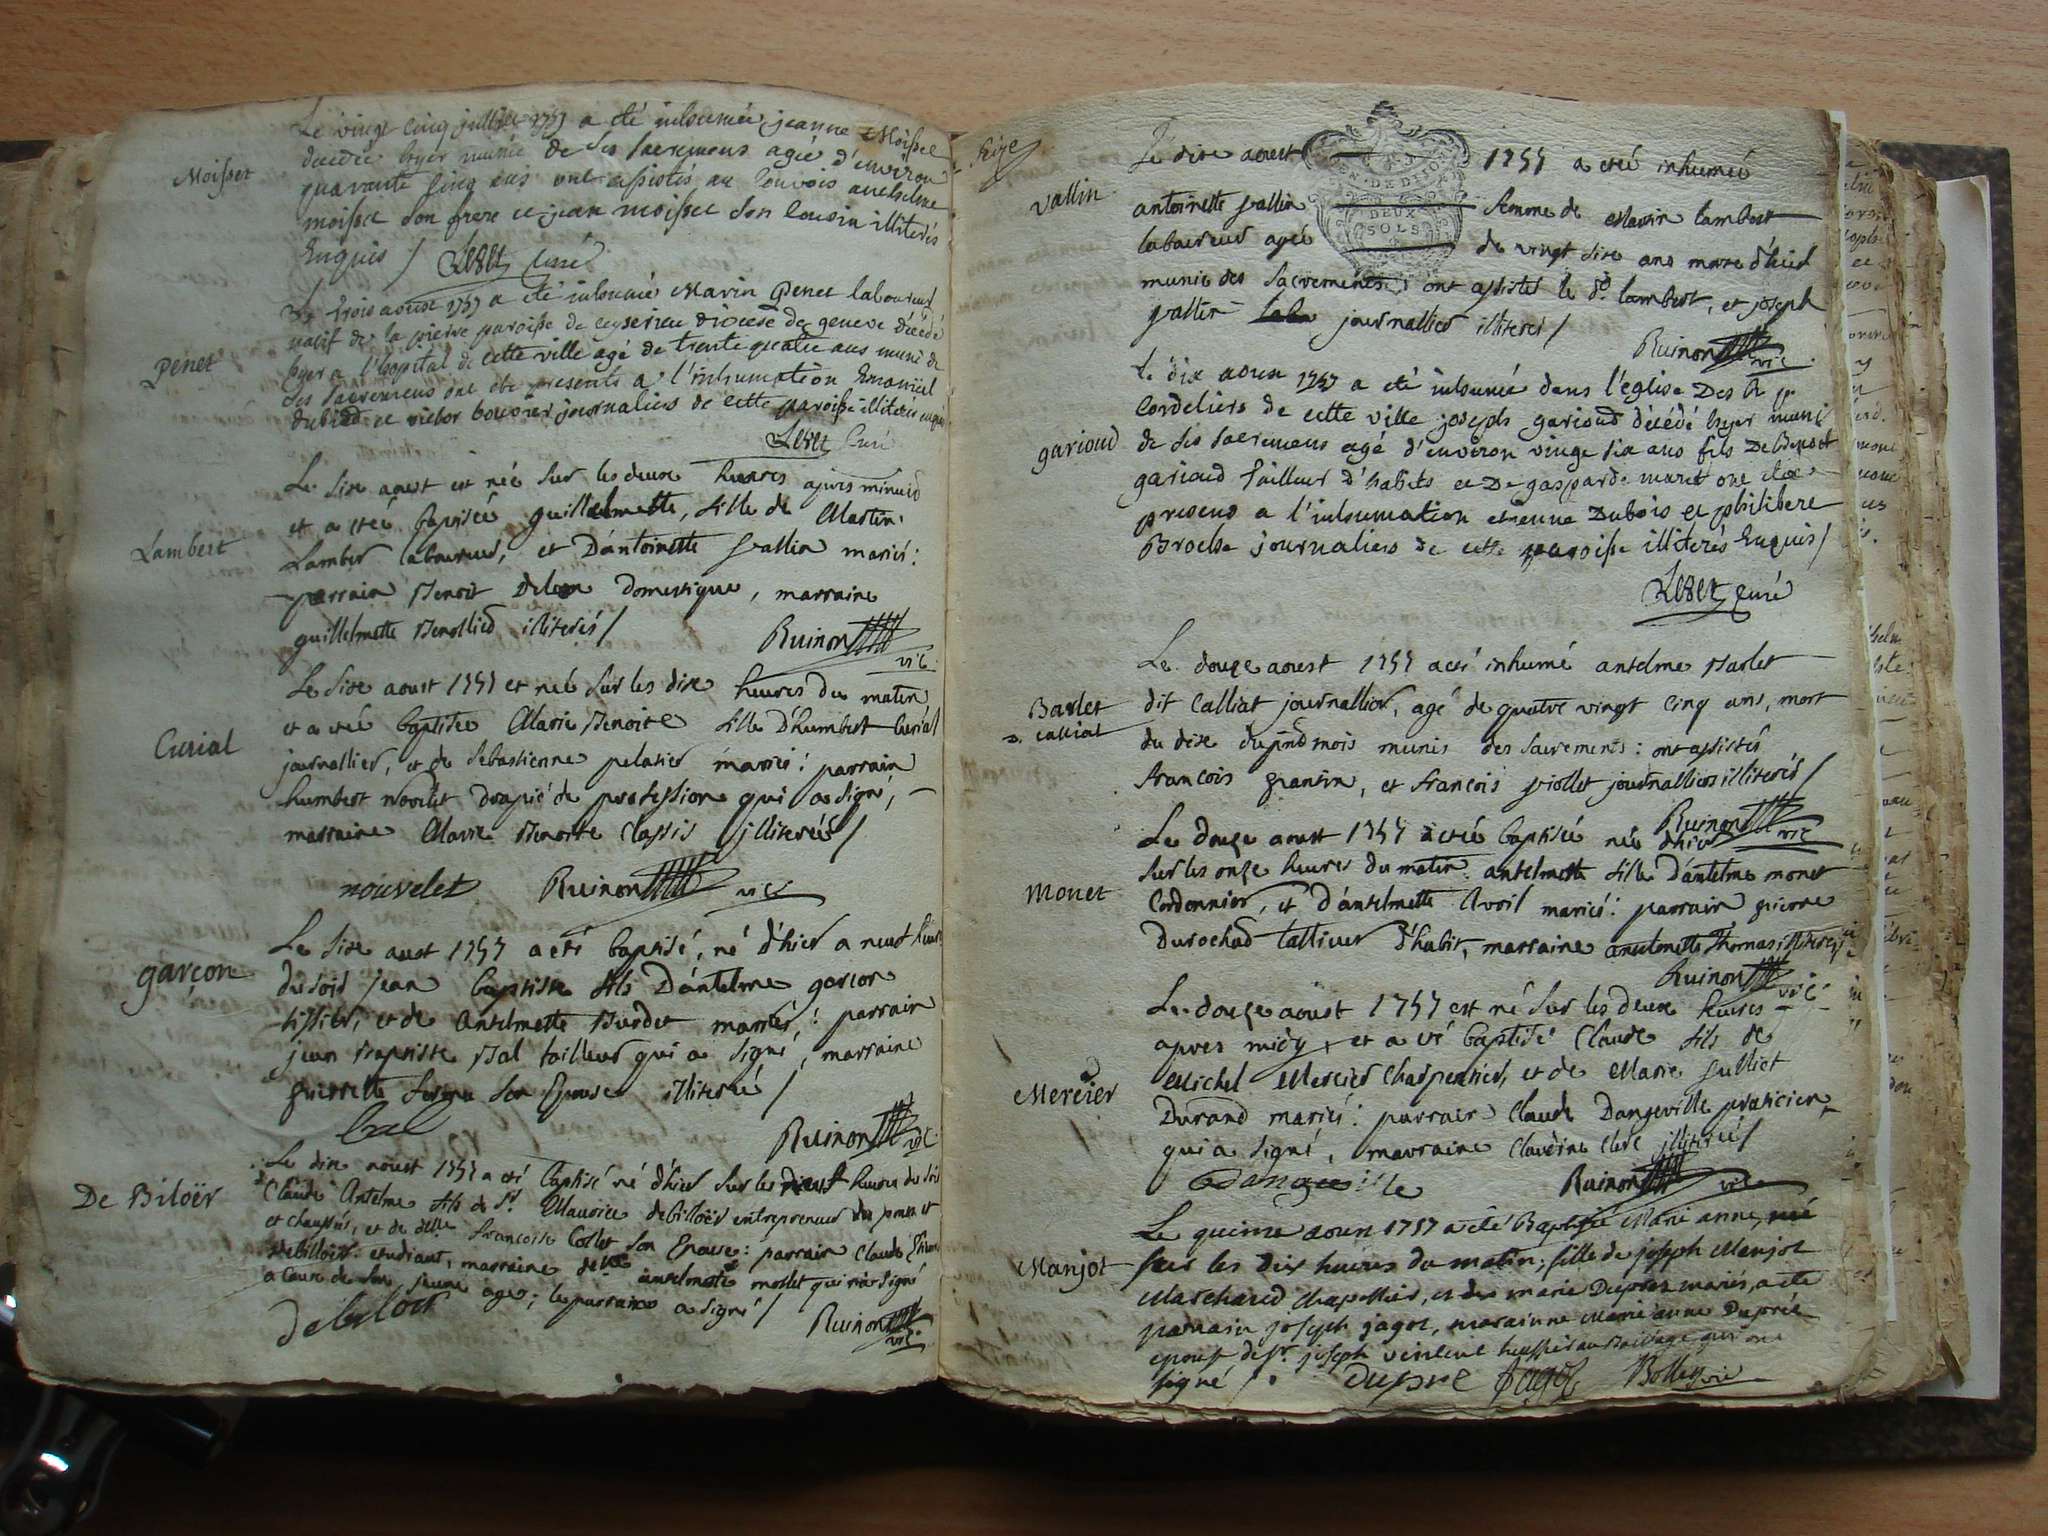 Moisset
Le vingt cinq juillet 1757 a été inhumée jeanne Moisset
décedée hyer munie de ses sacremens agée d'environ
quarante cinq ans ont assistés au convois anthelme
moisset son frere et jean moisset son cousin illiterés
Enquis / Curé
Penet
Le trois aoust 1757 a été inhumé Marin Penet laboureur
natif de la pierre paroisse de ceyserieu diocese de geneve décédé
hyer a l'hopital de cette ville agé de trente quatre ans muni de
ses sacremens ont été presents a l'inhumation Emanuel
dubied et victor bouvier journaliers de cette paroisse illiterés enquis
Curé
Lambert
Le sixe aoust est née sur les deux heures apres minuid
et a etée baptisée guillelmette, fille de Martin
Lamber laboureur, et D'antoinette vallin mariés:
parrain Benoit domestique, marraine
guillelmette illiterés /
Ruinon vic.
Curial
Le sixe aoust 1757 et née sur les dixe heures du matin
et a etée baptisée Marie Benoite fille D'humbert Curial
journallier, et de sebastienne pelatier mariés: parrain
humbert drapié de profession qui a signé,
marraine Marie Benoite Classis jlliterés /
nouvelet Ruinon vic
garçon
Le sixe aust 1757 a eté baptisé, né d'hier a neuf heures
du soir jean baptiste fils D'antelme garcon
tissier, et de Antelmette Burdet mariés,: parrain
jean Baptiste Bal tailleur qui a signé, marraine
pierrette son Epouse illiterée /
bal
Ruinon vic
De Biloër
Le dixe aoust 1757 a eté baptisé né d'hier sur les neuf heures du soir
Claude Antelme fils de Sr. Maurice debilloër entrepreneur des ponts et
et chaussés, et de delle francoise Collet son Epouse: parrain Claude
debilloër etudiant, marraine delle antelmete mollet qui n'a signé
a cause de son jeune age; le parrain a signé /
debiloër
Ruinon vic.
Seize
vallin
Le dixe aoust 1757 a etée inhumée
GEN. DE DIJON
DEUX
SOLS
antoinette vallin femme de Marin lambert
laboureur ageé de vingt sixe ans morte d'hier
munie des sacrements: ont assistés le dt. lambert, et joseph
vallin journallier illiterés /
Ruinon vic.
garioud
Le dix aoust 1757 a eté inhumé dans l'eglise Des R pp
Cordeliers de cette ville joseph garioud décédé hyer muni
de ses sacremens agé d'environ vingt six ans fils De Benoit
garioud tailleur d'habits et De gasparde muret ont été
presens a l'inhumation etienne Dubois et philibert
Broche journaliers de cette paroisse illiterés Enquis /
Curé
Barlet
d. calliat
Le douze aoust 1757 a eté inhumé antelme Barlet
dit Calliat journallier, agé de quatre vingt cinq ans, mort
du dixe du pnd mois munis des sacrements: ont assistés
francois grantin, et francois viollet journalliers illiterés /
Ruinon vic
Monet
Le douze aoust 1757 a etée baptisée née d'hier
sur les onze heures du matin antelmette fille D'antelme monet
Cordonnier, et D'antelmette Avoil mariés: parrain pierre
Durochad tallieur d'habit, marraine antelmette Thomas illiterés
Ruinon vic
Mercier
Le douze aoust 1757 est né sur les deux heures
apres midy et a eté baptisé Claude fils de
Michel Mercier Charpentier, et de Marie
Durand mariés: parrain Claude Dangeville praticien
qui a signé, marraine Claudine Clerc jlliterée /
Dangeville Ruinon vic
Manjot
Le quinze aoust 1757 a été Baptisée Marie anne, née
sur les dix heures du matin, fille de joseph Manjot
Marchand Chapellier, et de marie Duprez mariés, a été
parrain joseph jagot, marainne Marie anne Duprée
epouse de Sr. joseph qui ont
signé /. Dupré Jagot vic